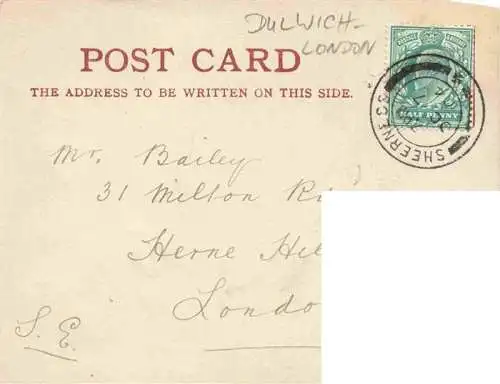 DULWICH-
LONDON
POST CARD
THE ADDRESS TO BE WRITTEN ON THIS SIDE.
HALF PENNY
SHEERNESS
Mr. Bailey
31 Milton R
Herne Hil
Londo
S.E.